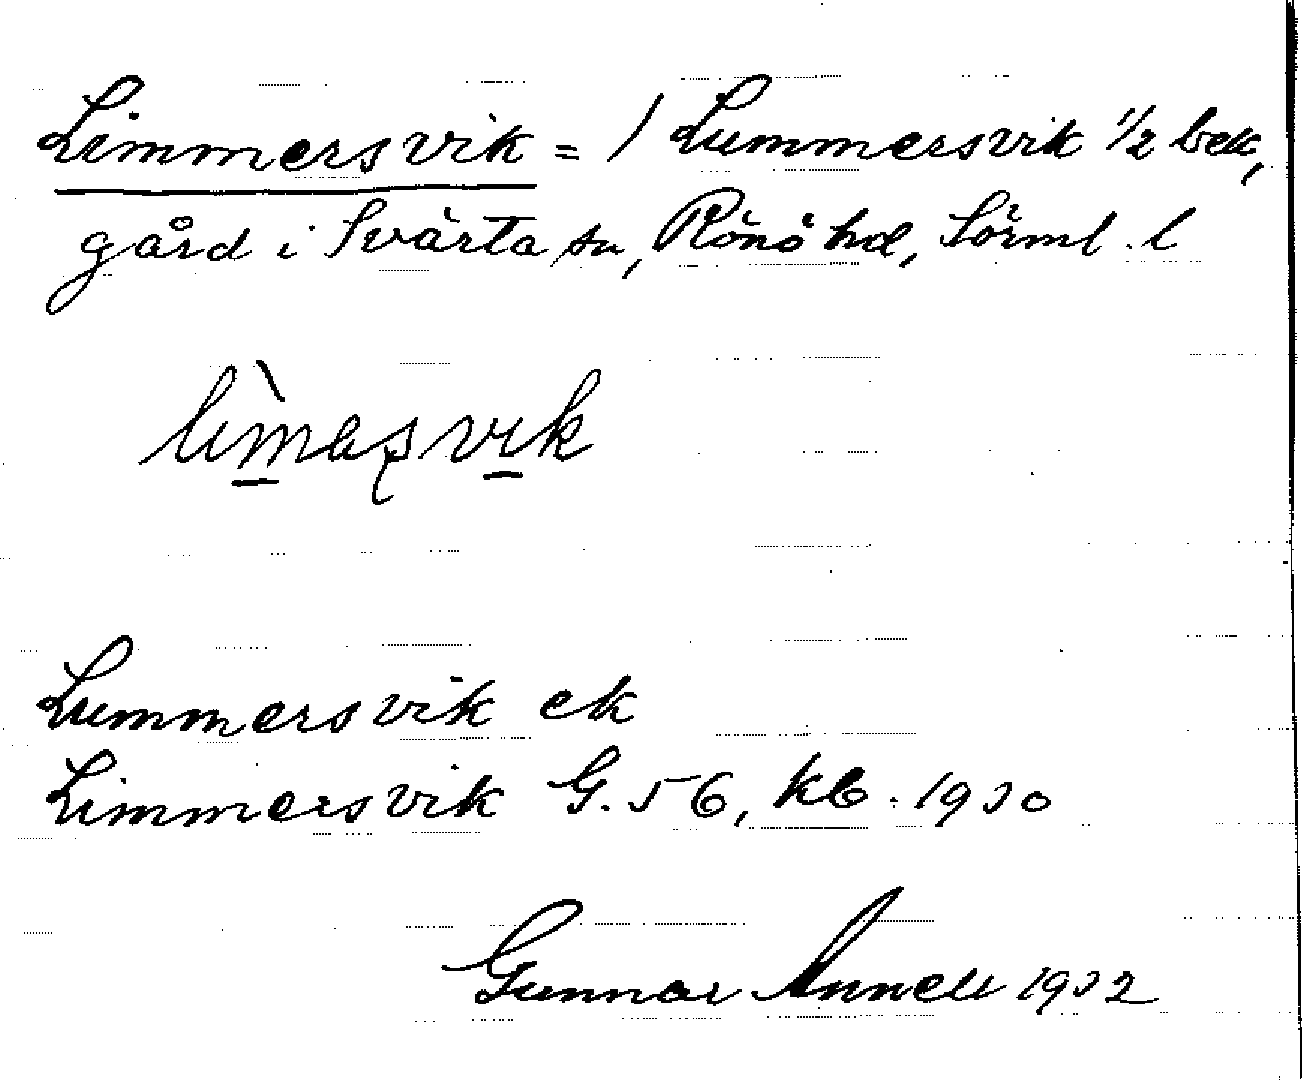 Limmersvik = / Lummersvik 1/2 bek,
gård i Svärta sn, Rönö hd, Sörml. l
Lummersvik ek
Limmersvik G. 56, kb. 1930
Gunnar Annell 1932